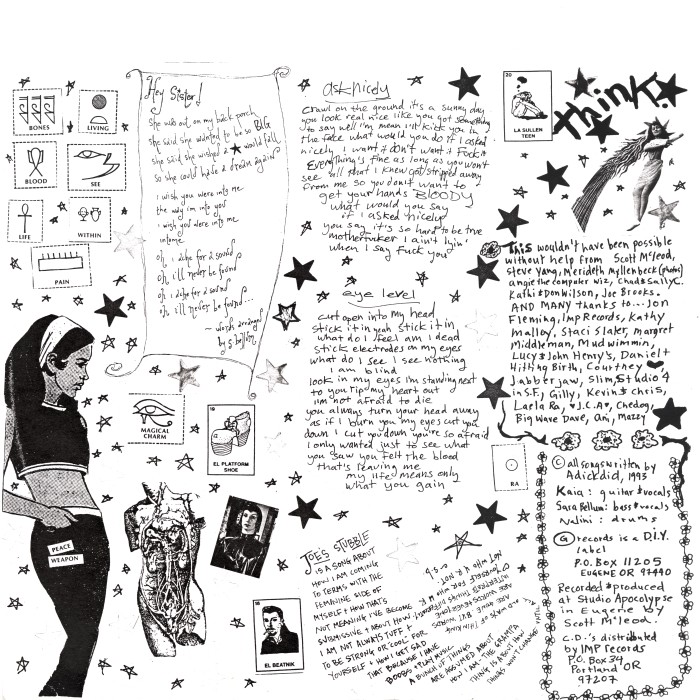 BONES
LIVING
BLOOD
SEE
LIFE
WITHIN
PAIN
Hey Sister!
She was out on my back porch
She said she wanted to be so BIG
she said she wished a ★ would fall
so she could have a dream again
I wish you were into me
the way I'm into you
I wish you were into me
into me
oh i ache for 2 sound
oh i'll never be found
oh i ache for 2 sound
oh, i'll never be found...
~ words arranged
by S. bellum
MAGICAL
CHARM
EL PLATFORM
SHOE
PEACE
WEAPON
EL BEATNIK
ask nicely
crawl on the ground it's a sunny day
you look real nice like you got something
to say well i'm mean i'll kick you in
the face what would you do if I asked
nicely I want it don't want it fuck it
Everything's fine as long as you won't
see all that I knew got stripped away
from me so you don't want to
get your hands BLOODY
what would you say
if i asked nicely
you say it's so hard to be true
motherfucker I ain't lyin'
when I say fuck you
eye level
cut open into my head
stick it in yeah stick it in
what do i feel am I dead
stick electrodes on my eyes
what do I see I see nothing
I am blind
look in my eyes im standing next
to you rip my heart out
i'm not afraid to die
you always turn your head away
as if I burn you my eyes cut you
down I cut you down you're so afraid
I only wanted just to see what
you saw you felt the blood
that's leaving me
my life means only
what you gain
JOE'S STUBBLE
IS A SONG ABOUT
HOW I AM COMING
TO TERMS WITH THE
FEMININE SIDE OF
MYSELF & HOW THAT'S
NOT MEANING I'VE BECOME
SUBMISSIVE & ABOUT HOW
I AM NOT ALWAYS TUFF &
TO BE STRONG OR 'COOL' FOR
YOURSELF & HOW I GET SAD
THAT BECAUSE I HAVE
BOOBS & I LUV MUSIC
A BUNCH OF THINGS
ARE ASSUMED ABOUT
20
LA SULLEN
TEEN
think!
This wouldn't have been possible
without help from Scott McLeod,
Steve Yang, Merideth Myllenbeck (photo)
angie the computer wiz, Chad & Sally,
Kathi & Don Wilson, Joe Brooks.
AND MANY thanks to... Jon
Fleming, Imp Records, Kathy
Malloy, Staci Slater, margret
Middleman, Mudwimmin,
Lucy & John Henry's, Daniel +
Hitting Birth, Courtney ♥,
Jabberjaw, Slim, Studio 4
in S.F., Gilly, Kevin & Chris,
Laela Ra, ♥ J.C.A♥, Chedog,
Big Wave Dave, Ani, Mazzy
RA
© all songs written by
Adickdid, 1993
Kaia: guitar & vocals
Sara Bellum: bass & vocals
Nalini: drums
G records is a D.I.Y.
label
P.O. Box 11205
EUGENE OR 97440
Recorded & produced
at Studio Apocalypse
in Eugene by
Scott McLeod.
C.D.'s distributed
by IMP Records
P.O. Box 34
Portland OR
97207